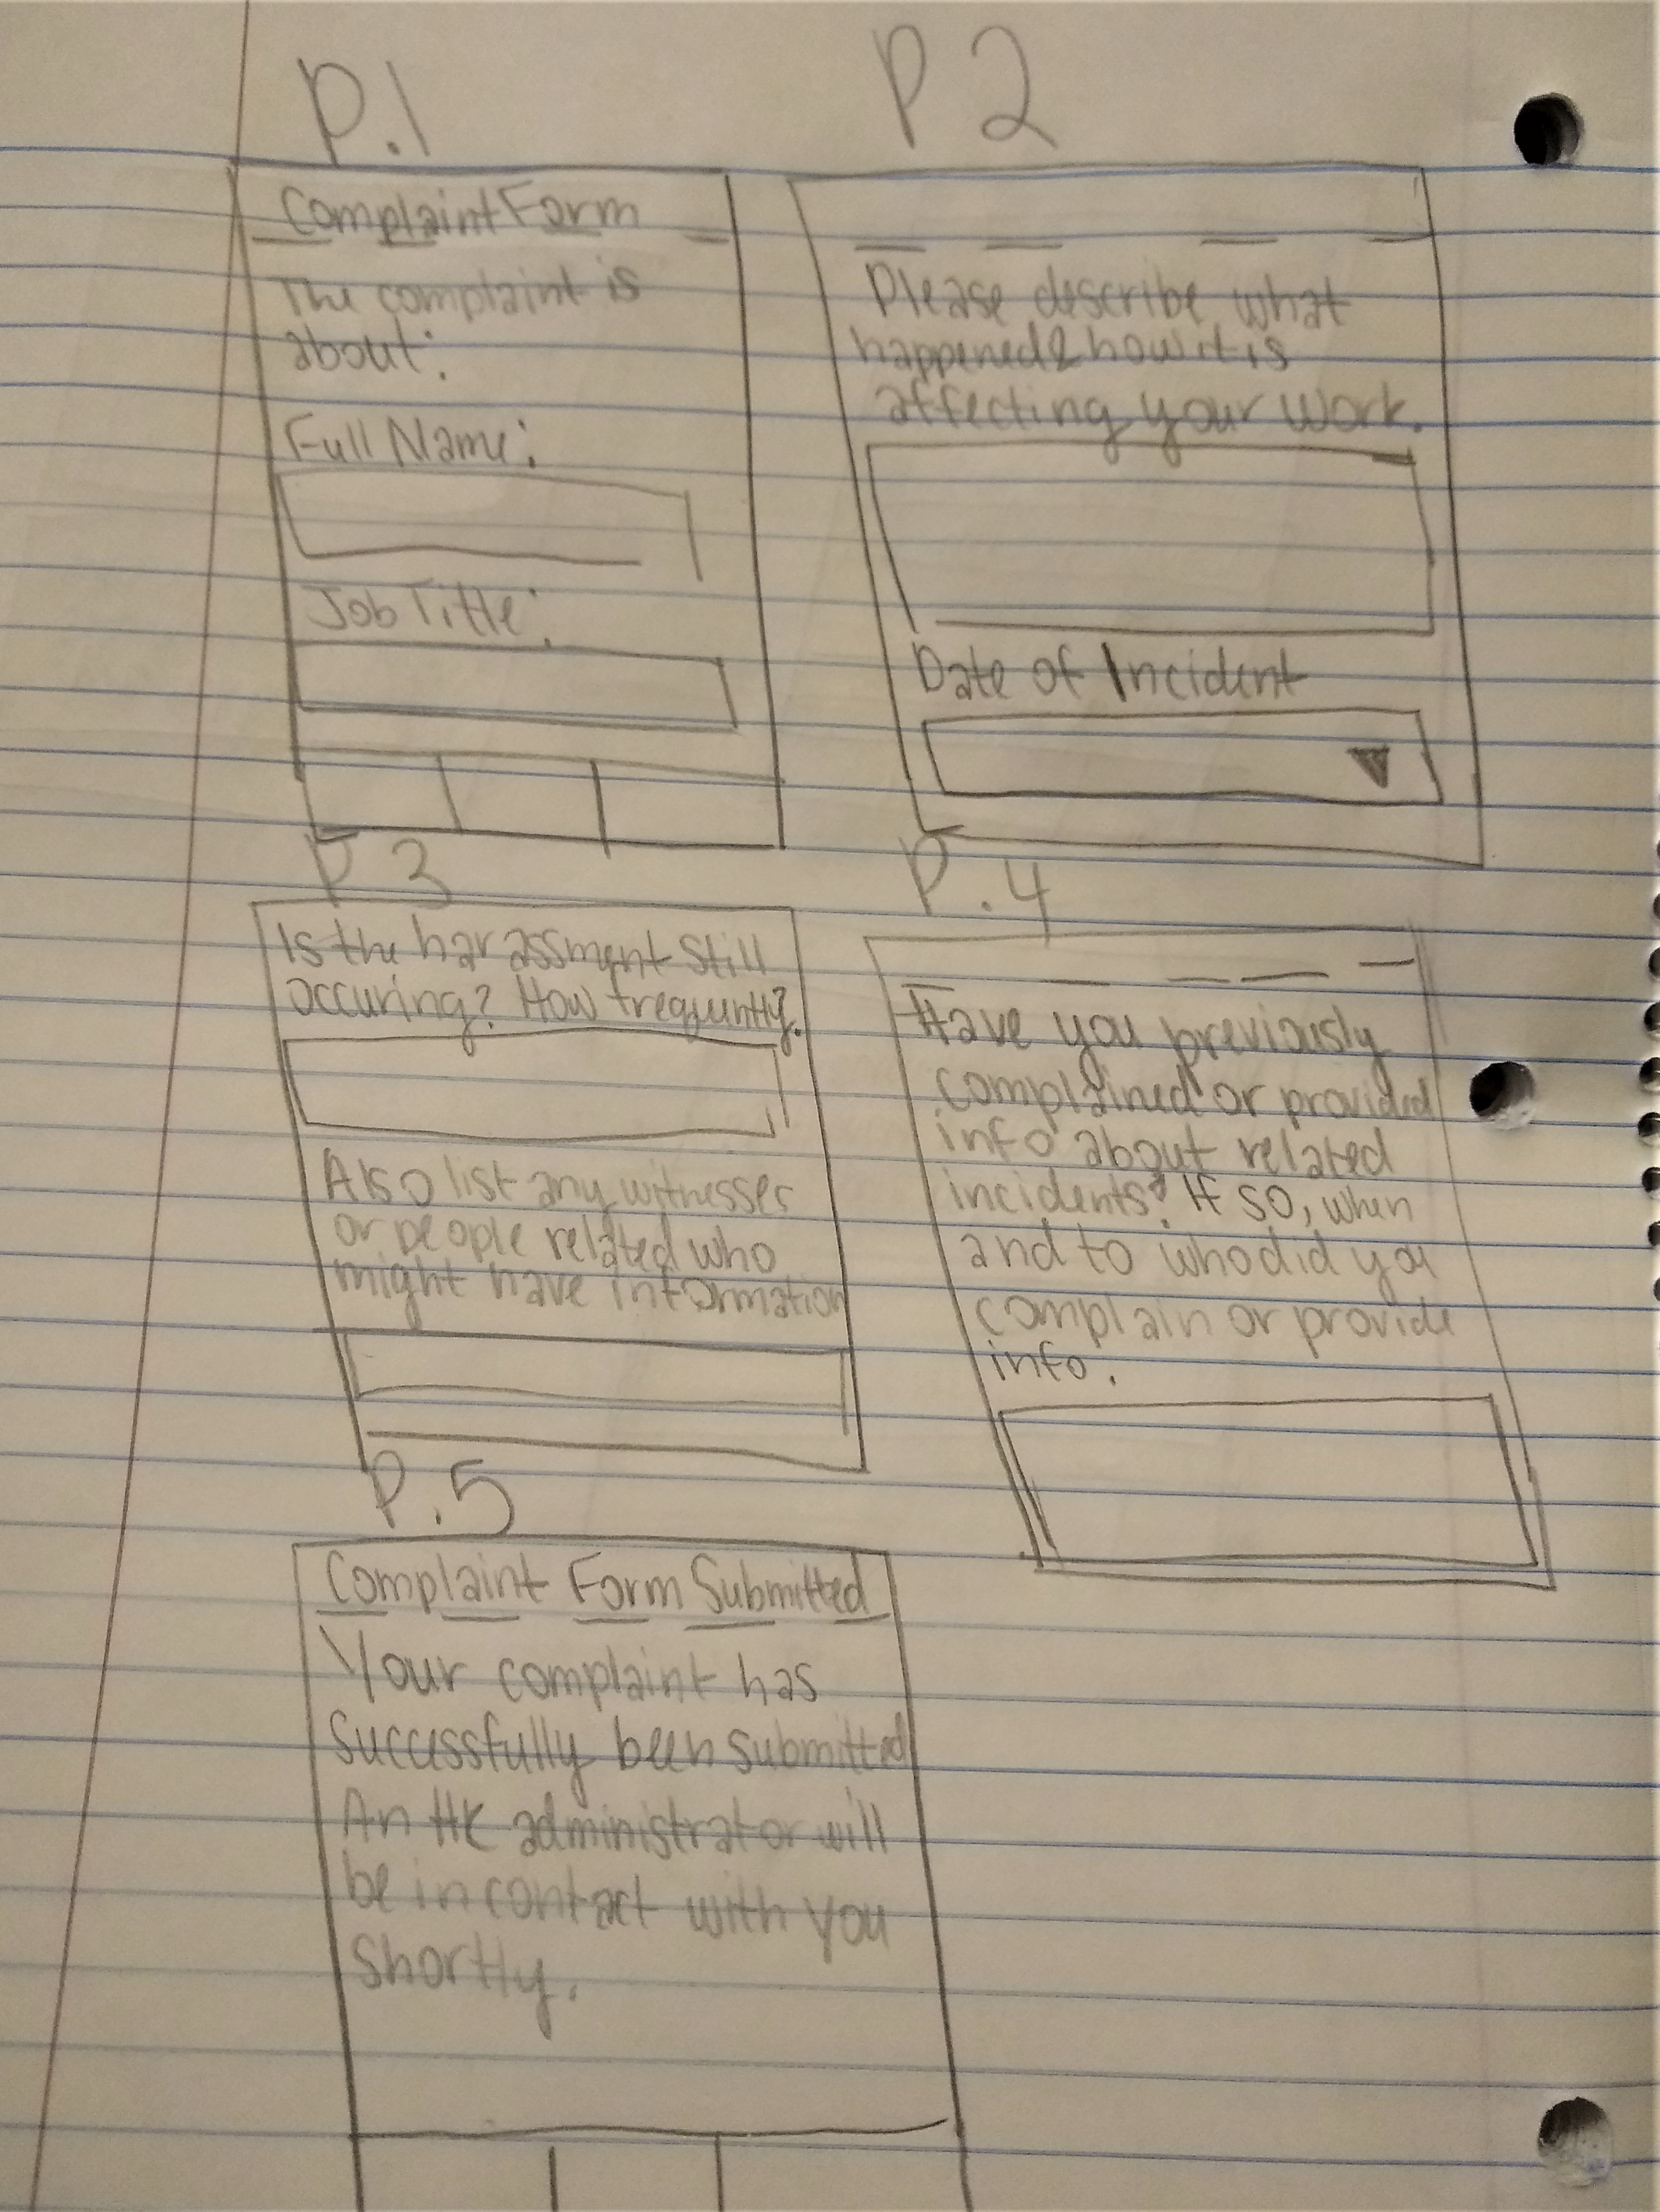 P.1
Complaint Form
The complaint is
about:
Full Name:
Job Title:
P 2
Please describe what
happened & how it is
affecting your work.
Date of Incident
P 3
Is the harassment still
occuring? How frequently?
Also list any witnesses
or people related who
might have information
P.4
Have you previously
complained or provided
info about related
incidents? If so, when
and to who did you
complain or provide
info.
P.5
Complaint Form Submitted
Your complaint has
Successfully been submitted
An HR administrator will
be in contact with you
Shortly.